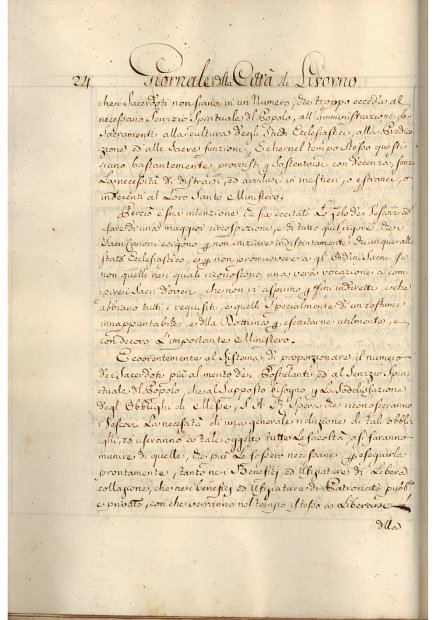 24 Giornale della Città di Livorno
che i Sacerdoti non siano in un Numero, che troppo ecceda al
necessario Servizio Spirituale del Popolo, all'amministrazione de
Sacramenti alla cultura degli Studi Ecclesiastici, alla Predica
zione, ed alle Sacre funzioni, e che nel tempo stesso questi
siano bastantemente provvisti p sostentarsi con decenza, senza
la necessità di distrarsi, ed avvilirsi in mestieri, o estranei, o
indecenti al Loro Santo Ministero.
Perciò è sua intenzione che sia eccitato Lo zelo dei Vescovi ad
usare di una maggior circospezione, e di tutto quel rigore, che i
Sacri Canoni esigono p non iniziare indistintamente chiunque allo
stato Ecclesiastico, e p non promuovere a gl' Ordini Sacri se
non quelli nei quali riconoscono una vera vocazione a com
piere i Sacri doveri, che non vi aspirino p fini indiretti, e che
abbiano tutti i requisiti, e quelli specialmente di un costume
innappuntabile, e della Dottrina p esercitarne utilmente, e
con decoro L'importante Ministero.
E coerentemente al Sistema di proporzionare il numero
dei Sacerdoti più al merito dei Postulanti, ed al Servizio Spiri
tuale del Popolo, che al supposto bisogno p La Soddisfazione
degl' Obblighi di Messe, S. A. R. Spera che riconosceranno
i Vescovi La necessità di una generale riduzione di tali obbli
ghi, ed useranno a tale oggetto tutte Le facoltà, o si faranno
munire di quelle, che più Le fossero necessarie p eseguirla
prontamente, tanto nei Benefizj, ed Ufiziature di Libera
collazione, che nei benefizj ed Ufiziature di Patronato pubblico
e privato, con che verranno nel tempo istesso a Liberare
dalla